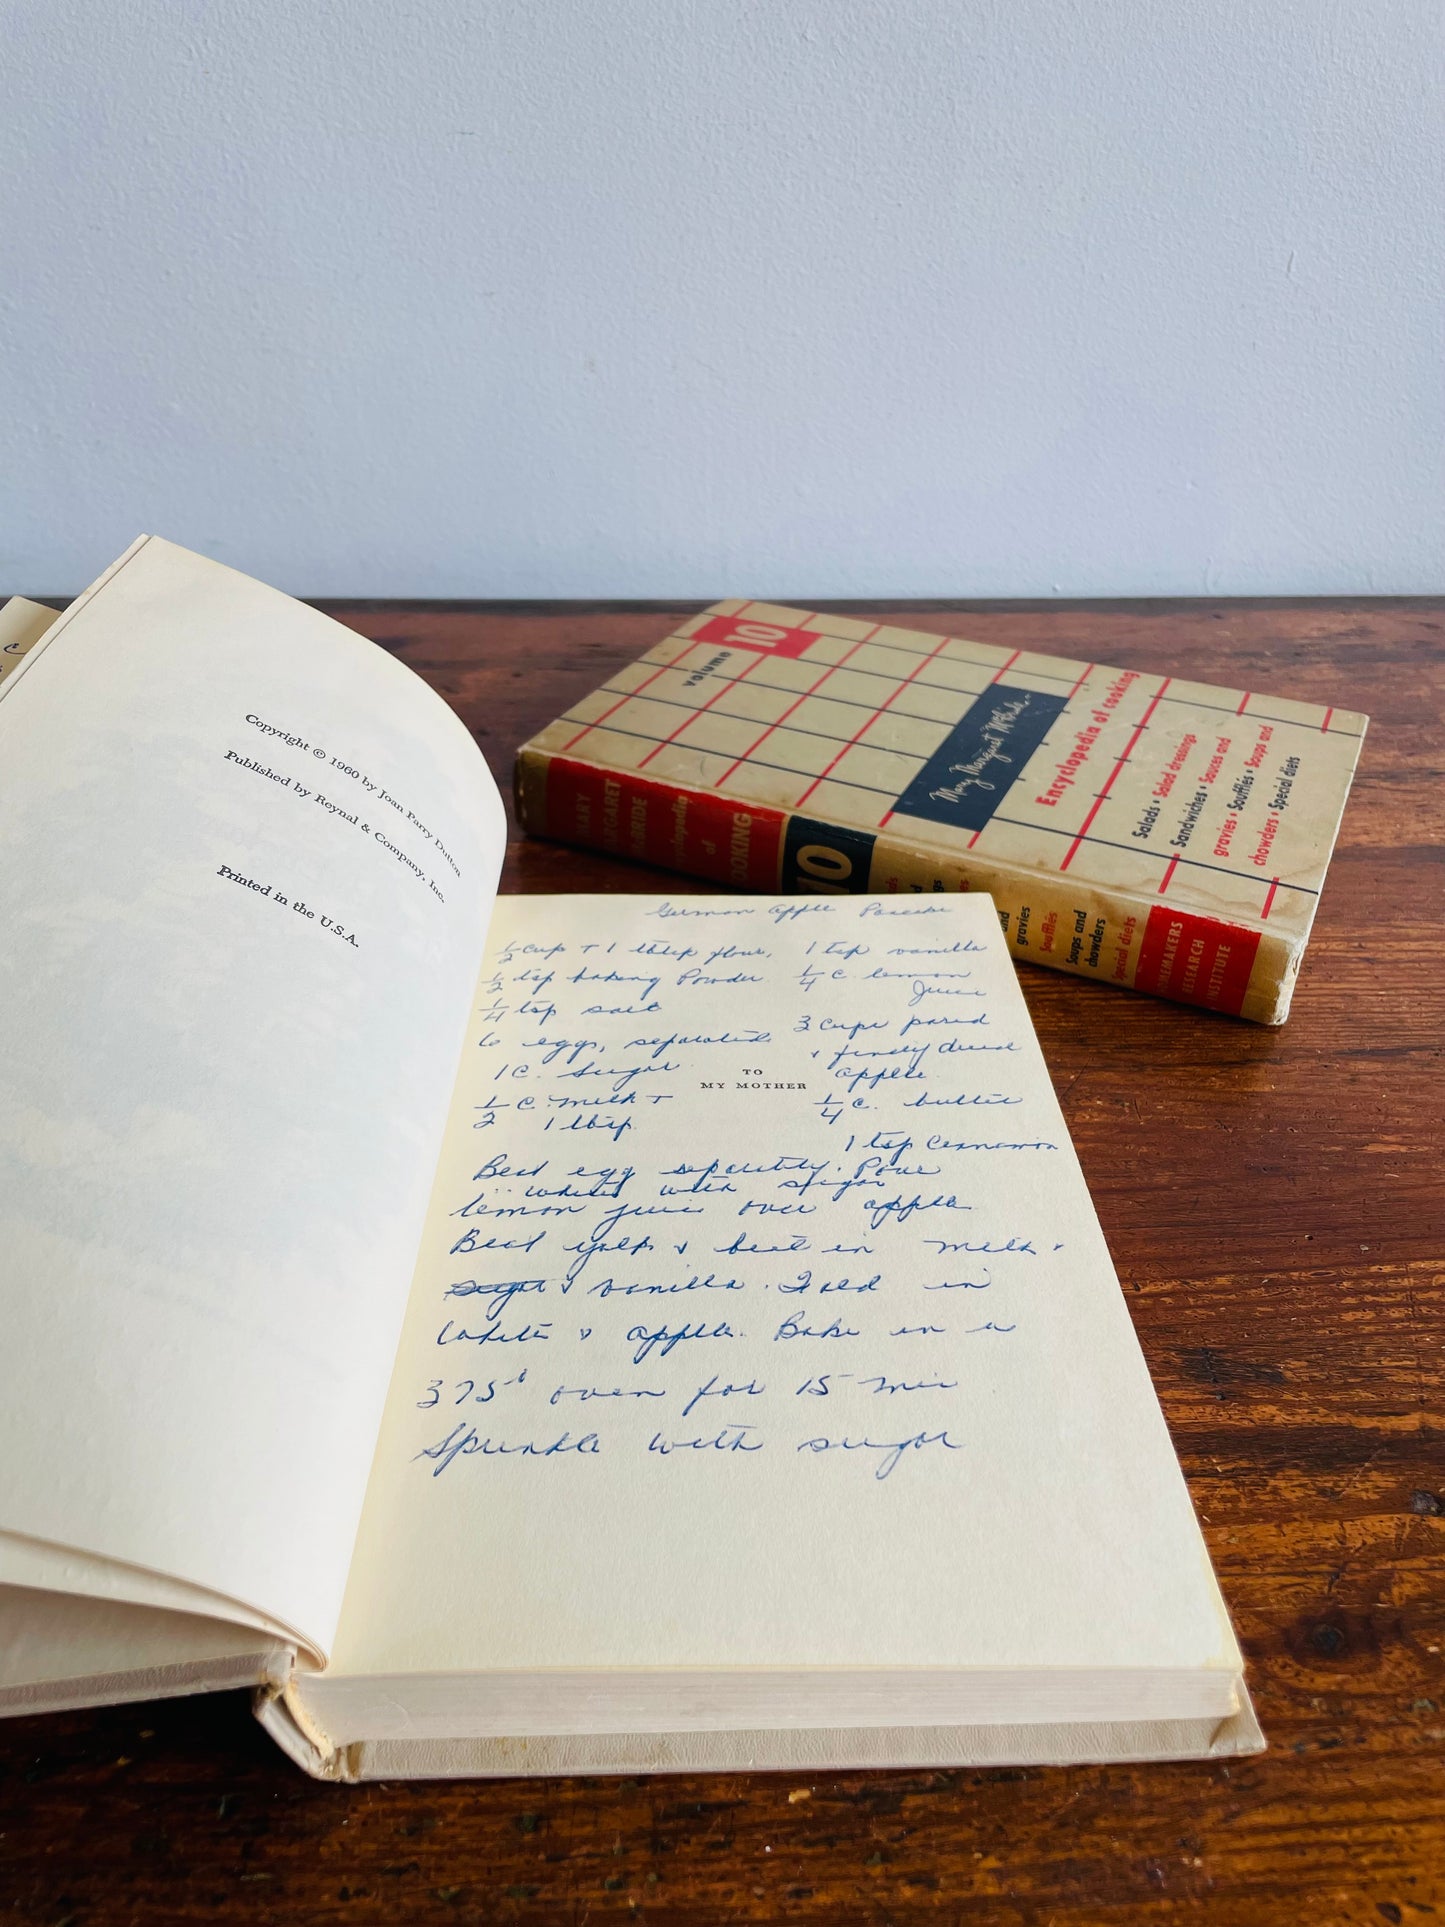 Copyright © 1960 by Joan Parry Dutton
Published by Reynal & Company, Inc.
Printed in the U.S.A.
German Apple Pancake
1/2 cup + 1 tbsp flour,
1/2 tsp baking Powder
1/4 tsp salt
6 eggs, separated
1 C. Sugar
1/2 C. milk +
1 tbsp.
1 tsp vanilla
1/4 C. lemon
Juice
3 cups pared
& finely diced
apple.
1/4 C. butter
1 tsp Cinnamon
TO
MY MOTHER
Beat egg separately. Pour
whites with sugar
lemon juice over apple
Beat yolks & beat in milk.
sugar & vanilla. Fold in
white & apple. Bake in a
375° oven for 15 min
Sprinkle with sugar
volume 10
Mary Margaret McBride
Encyclopedia of cooking
Salads • Salad dressings
Sandwiches • Sauces and
gravies • Soufflés • Soups and
chowders • Special diets
MARY
MARGARET
McBRIDE
Encyclopedia
of
COOKING
10
gravies
Soufflés
Soups and
chowders
Special diets
HOMEMAKERS
RESEARCH
INSTITUTE